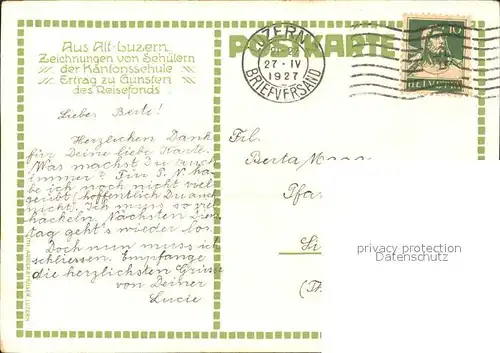 Aus Alt-Luzern
Zeichnungen von Schülern
der Kantonsschule
Ertrag zu Gunsten
des Reisefonds
POSTKARTE
LUZERN
27·IV
1927
BRIEFVERSAND
10
HELVETIA
Liebes Berti!
Herzlichen Dank
für Deine liebe Karte.
Was machst Du auch
immer? Für P. N. ha-
be ich noch nicht viel
geübt (hoffentlich Du auch
nicht). Ich muss so viel
häckeln. Nächsten Diens
tag geht's wieder los.
Doch nun muss ich
schliessen. Empfange
die herzlichsten Grüsse
von Deiner
Lucie
Frl.
Berta
Pfar
privacy protection
Datenschutz